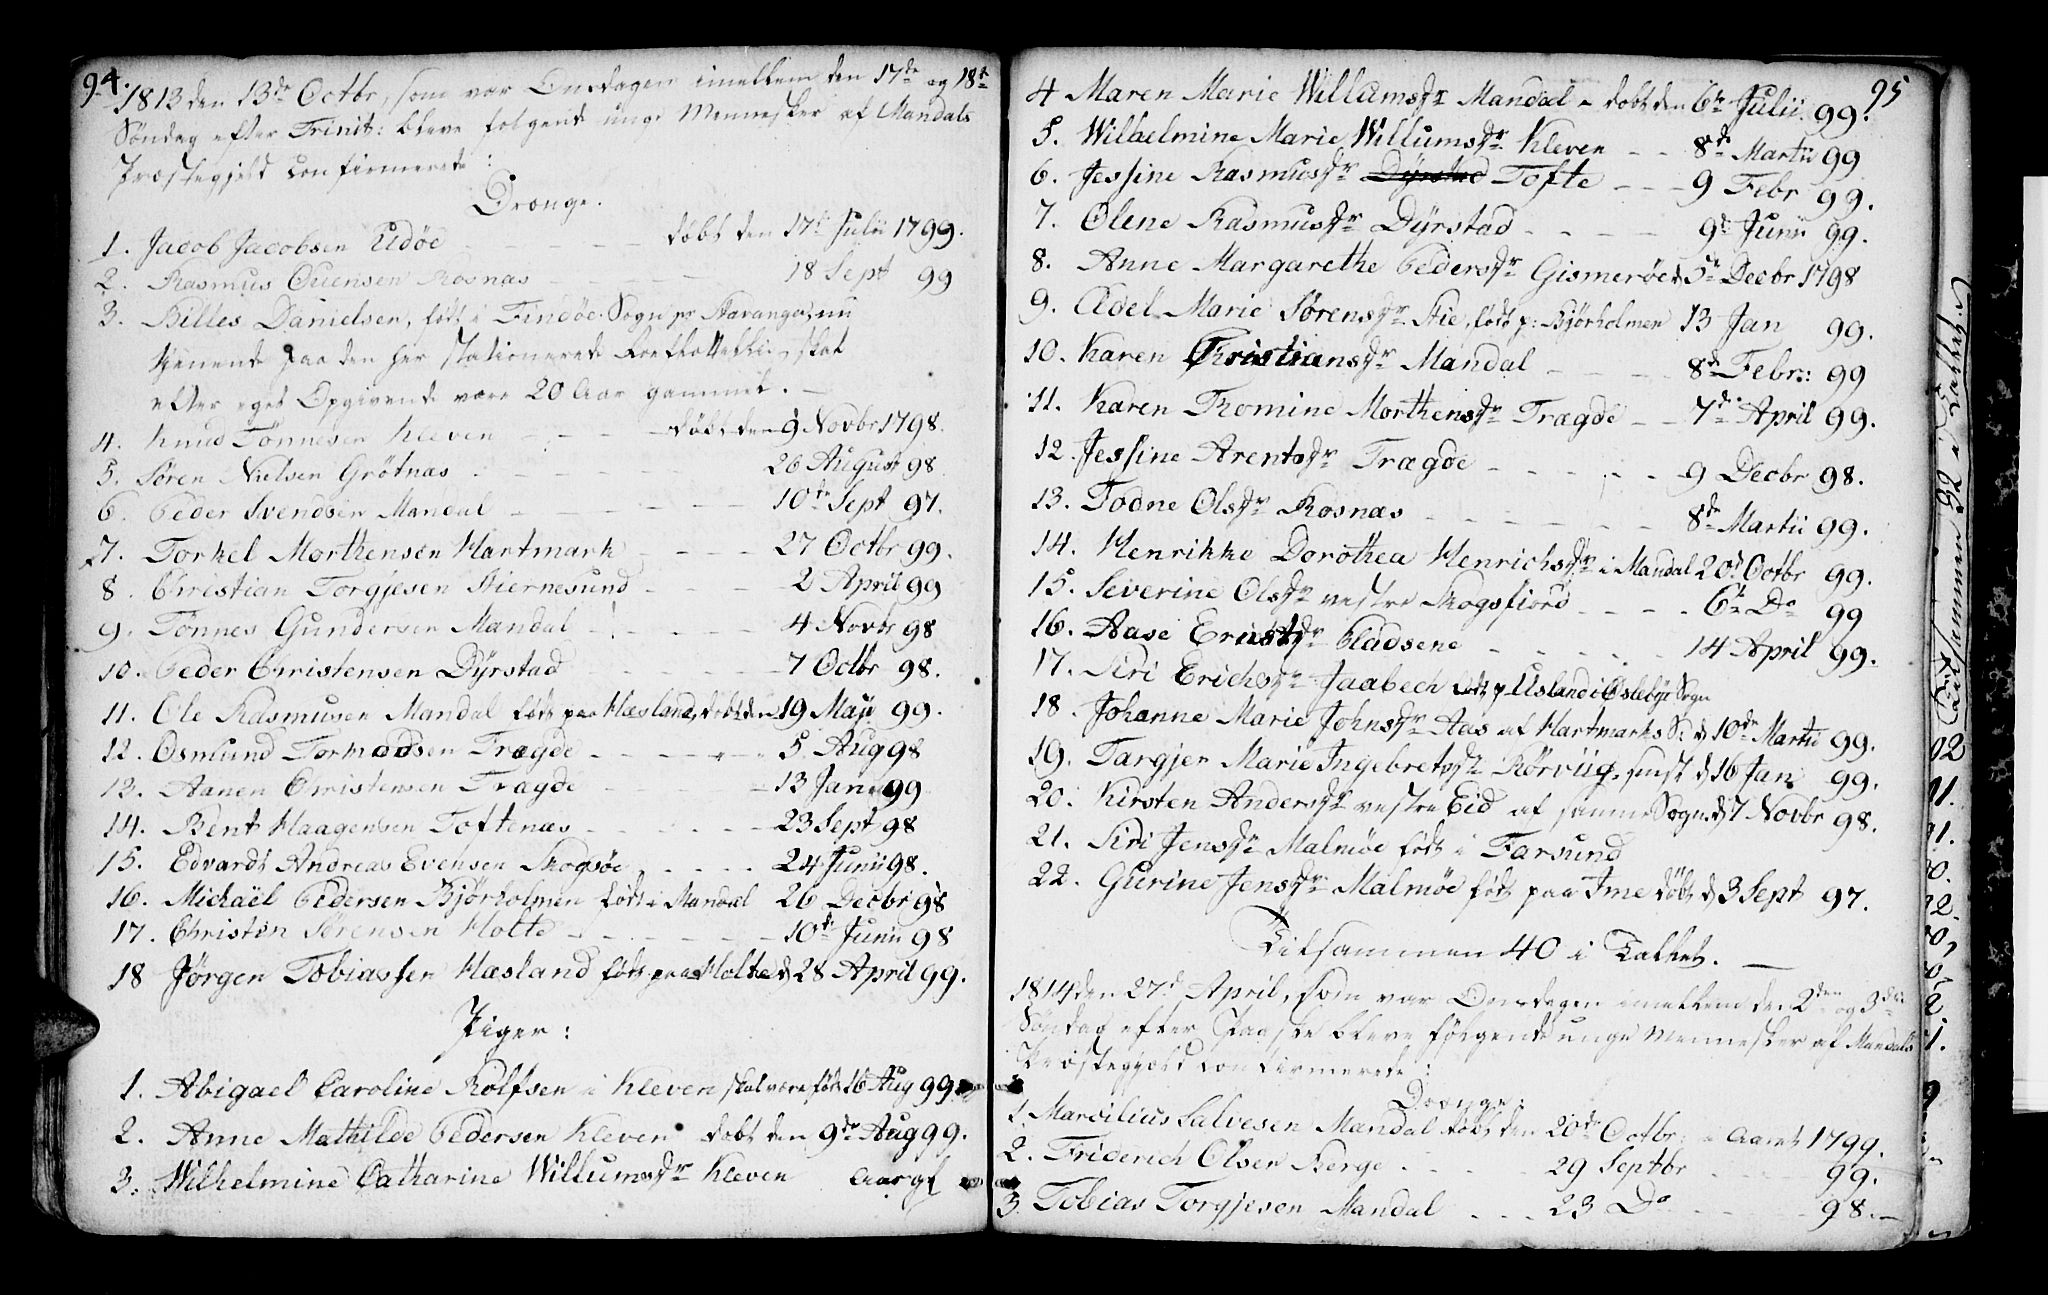 94.
1813 den 13de Octbr, som var Onsdagen imellem den 17de og 18de
Søndag efter Trinit: bleve følgende unge Mennesker af Mandals
Præstegjeld confirmerede:
Drenge.
1. Jacob Jacobsen Udøe - - - døbt den 17de Julii 1799.
2. Rasmus Ouensen Rosnæs - - - 18 Sept 99
3. Billes Danielsen, født i Findöe Sogn pr Stavanger, nu
tjenende paa den her stationerede Roeflottille, skal
efter eget Opgivende være 20 Aar gammel. -
4. Knud Tönnesen Kleven - - - døbt den 9 Novbr 1798.
5. Søren Nielsen Grötnæs - - 26 August 98.
6. Peder Svendsen Mandal - - - 10de Sept 97.
7. Torkel Morthensen Hartmark - - - 27 Octbr 99.
8. Christian Torgjesen Stiernesund - - - 2 April 99
9. Tönnes Gundersen Mandal - - - 4 Novbr 98
10. Peder Christensen Dÿrstad - - - 7 Octbr 98.
11. Ole Rasmusen Mandal født paa Hæsland, døbt den 19 Maji 99.
12. Osmund Tormodsen Trægde - - - 5 Aug 98
13. Aanen Christensen Trægde - - - 13 Jan 99
14. Bent Haagensen Toftenæs - - - 23 Sept 98
15. Edvardt Andreas Evensen Skogsøe - - - 24 Junii 98.
16. Michaël Pedersen Bjørholmen født i Mandal 26 Decbr 98
17. Christen Sørensen Holte - - - 10de Junii 98
18 Jørgen Tobiassen Hæsland født paa Holte d 28 April 99.
Piger:
1. Abigael Caroline Rolfsen i Kleven skal være født 16 Aug 99.
2. Anne Mathilde Pedersen Kleven døbt den 9de Aug 99.
3. Wilhelmine Catharine Willumsdr Kleven
95
4 Maren Marie Willumsdr Mandal - døbt den 6te Julii 99.
5. Wilhelmine Marie Willumsdr Kleven - - 8de Martii 99
6. Jessine Rasmusdr Dÿrstad Tofte - - - 9 Febr 99.
7. Olene Rasmusdr Dÿrstad - - - - 9de Junii 99.
8. Anne Margarethe Pedersdr Gismerøe d 5te Decbr 1798
9. Adel Marie Sørensdr Stie, født p: Bjørholmen 13 Jan 99.
10. Karen Christiansdr Mandal - - - 8de Febr: 99
11. Karen Thomine Morthensdr Trægde - - 7de April 99.
12. Jessine Arentsdr Trægde - - - - 9 Decbr 98.
13. Todne Olsdr Rosnæs - - - - 8de Martii 99.
14. Henrikke Dorothea Henrichsdr i Mandal 20d Octbr 99.
15. Severine Olsdr vestre Skogsfiord - - - - 6te Do 99
16. Aase Ernstsdr Pladsene - - - - 14 April 99.
17. Siri Erichsdr Jaabech født p Usland i Øslebÿe Sogn
18. Johanne Marie Johnsdr Aas af Hartmarks S: d 10de Martii 99.
19. Targjer Marie Ingebretsdr Rörviig, smst d 16 Jan 99.
20. Kirsten Andersdr vestre Eid af samme Sogn d 7 Novbr 98.
21. Siri Jensdr Malmøe født i Farsund
22. Gurine Jensdr Malmøe født paa Ime døbt d 3 Sept 97.
Tilsammen 40 i Tallet. -
1814 den 27d April, som var Onsdagen imellem den 2den og 3die
Søndag efter Paaske bleve følgende unge Mennesker af Mandals
Præstegjeld confirmerede:
Drenge:
1. Marcilius Salvesen Mandal døbt den 20de Octbr: i Aaret 1799.
2. Friderich Olsen Berge - - - - 29 Septbr - - - 99.
3. Tobias Torgjesen Mandal - - - 23 Do - - - 98. -
Tilsammen 32 i Tallet